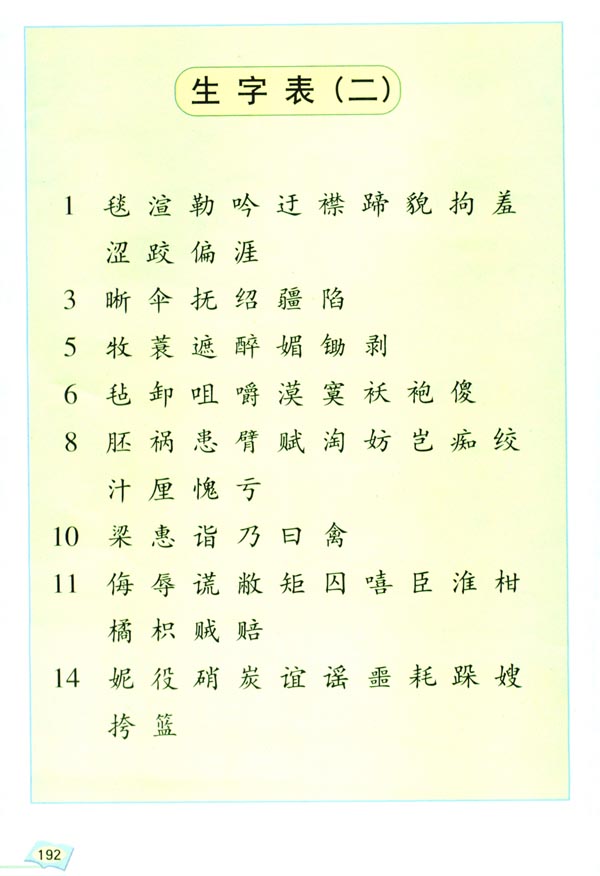 生字表(二)
1 毯 渲 勒 吟 迂 襟 蹄 貌 拘 羞
涩 跤 偏 涯
3 晰 伞 抚 绍 疆 陷
5 牧 蓑 遮 醉 媚 锄 剥
6 毡 卸 咀 嚼 漠 寞 袄 袍 傻
8 胚 祸 患 臂 赋 淘 妨 岂 痴 绞
汁 厘 愧 亏
10 梁 惠 诣 乃 曰 禽
11 侮 辱 谎 敝 矩 囚 嘻 臣 淮 柑
橘 枳 贼 赔
14 妮 役 硝 炭 谊 谣 噩 耗 跺 嫂
挎 篮
192